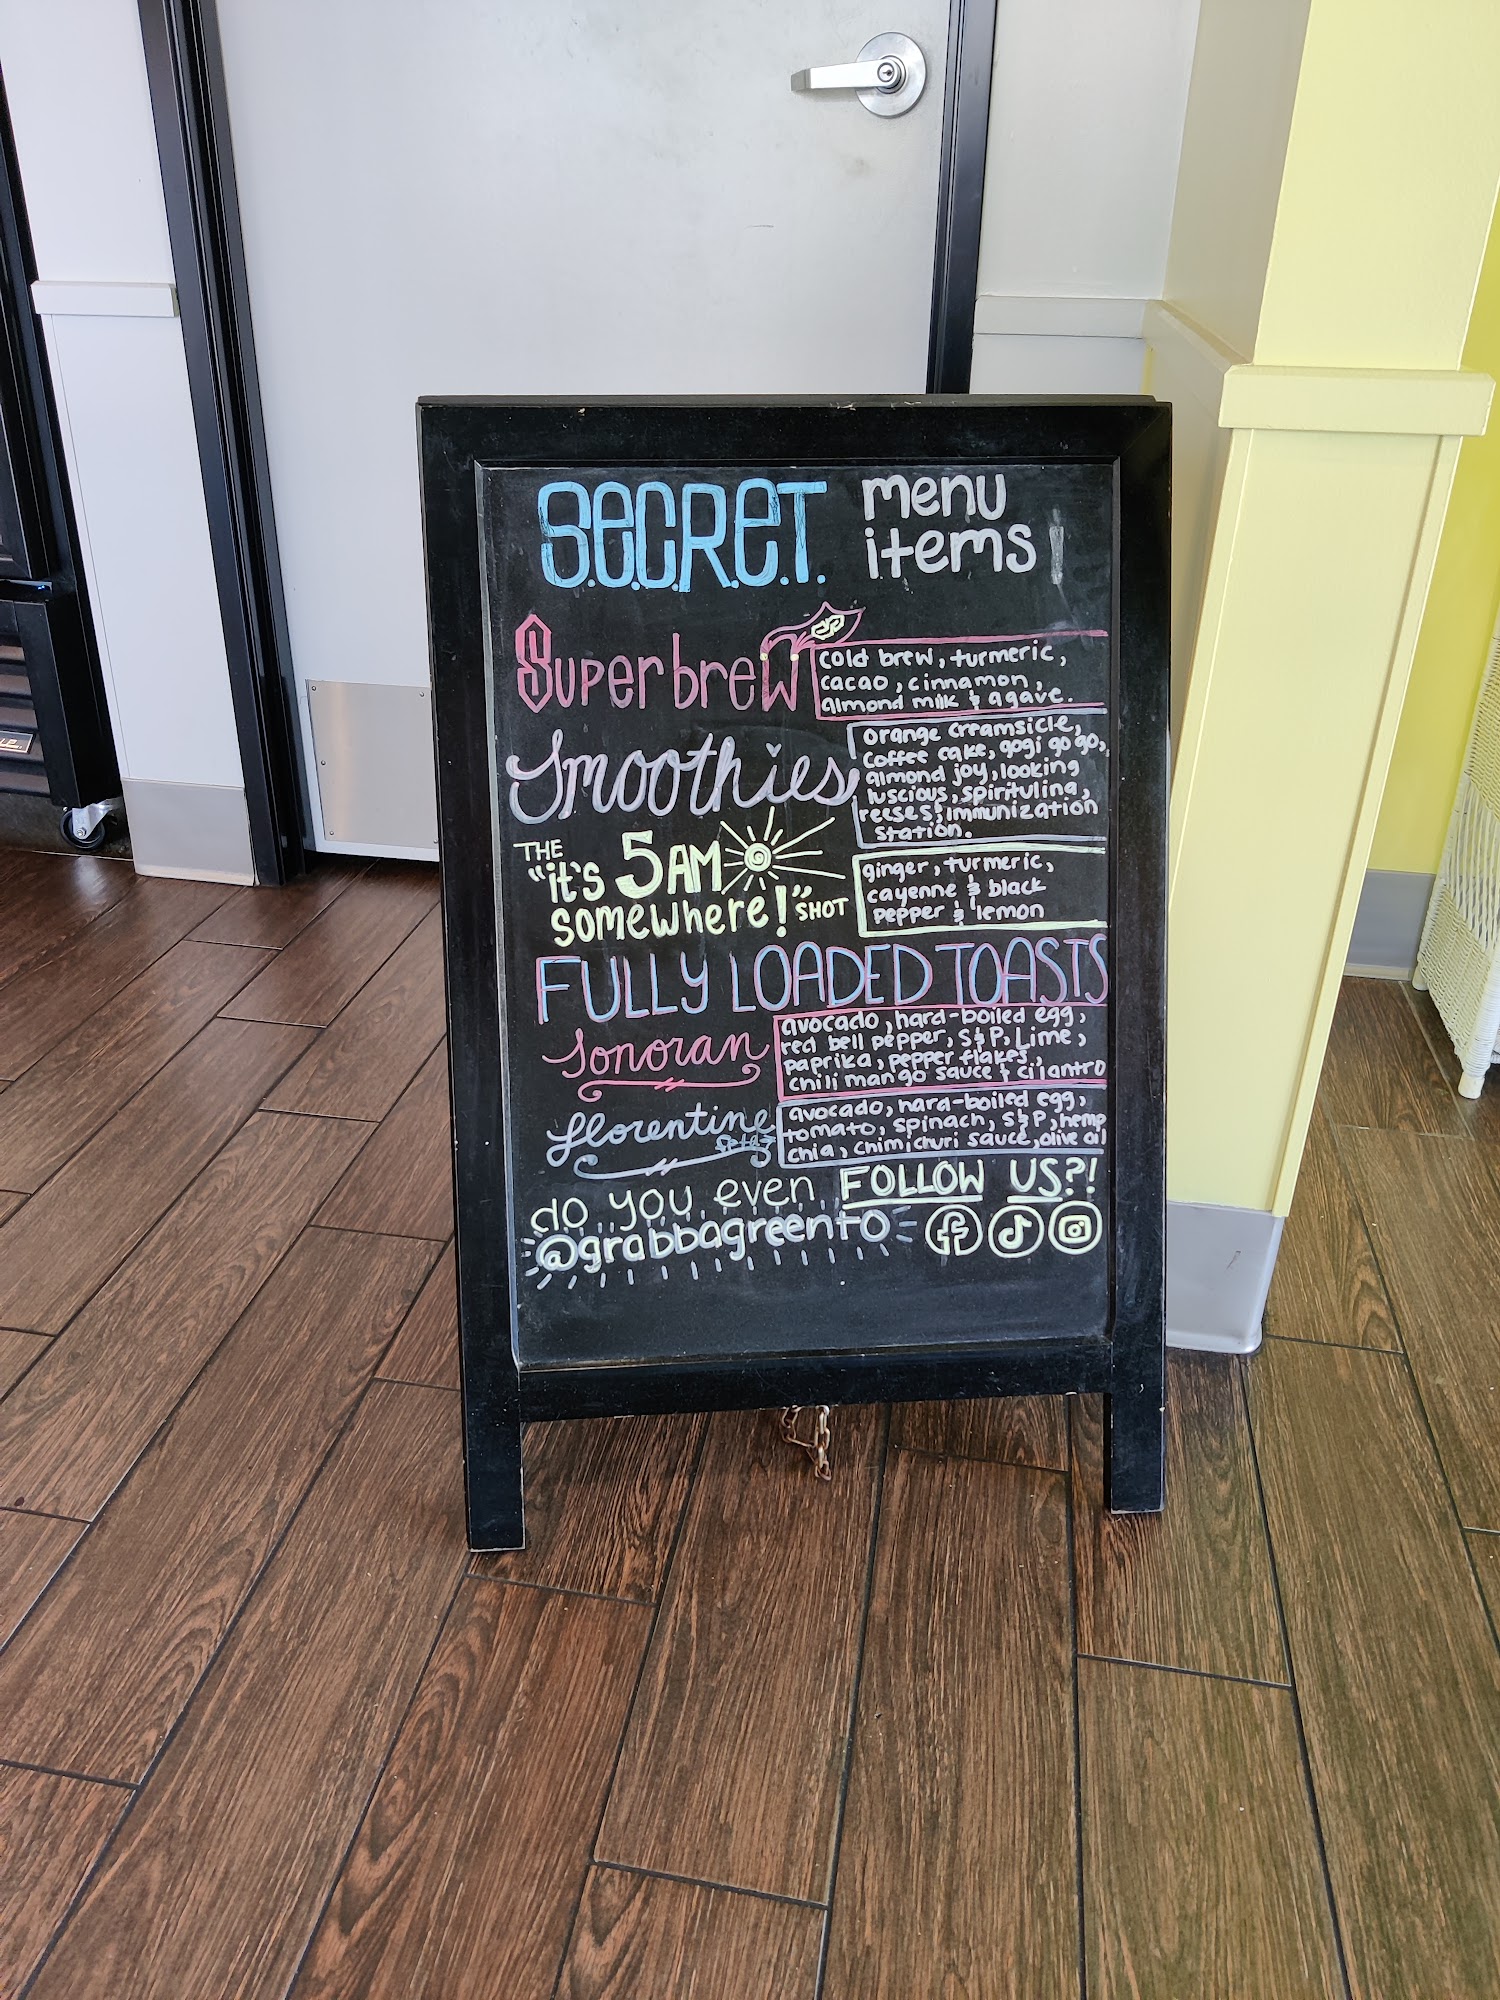 S.e.C.R.e.T. menu
items
Superbrew
cold brew, turmeric,
cacao, cinnamon,
almond milk & agave.
Smoothies
orange creamsicle,
coffee cake, gogi go go,
almond joy, looking
luscious, spiritulina,
reeses, immunization
station.
THE
"it's 5AM
somewhere!" SHOT
ginger, turmeric,
cayenne & black
pepper & lemon
FULLY LOADED TOASTS
Sonoran
avocado, hard-boiled egg,
red bell pepper, S&P, Lime,
paprika, pepper flakes,
chili mango sauce & cilantro
florentine
avocado, hard-boiled egg,
tomato, spinach, S&P, hemp
chia, chimichuri sauce, olive oil
do you even FOLLOW US?!
@grabbagreento